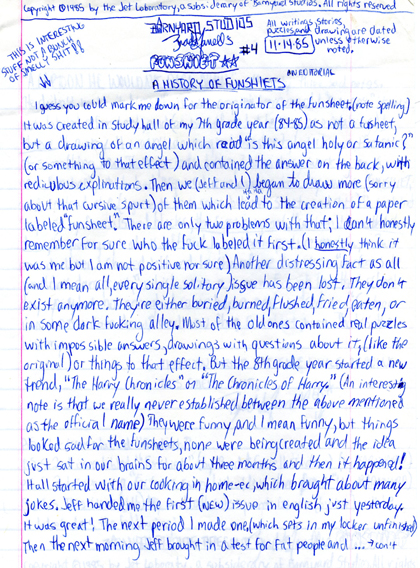 Copyright ©1985 by the Jet Laboratory, a subsidenary of Barnyard Studios. All rights reserved
BARNYARD STUDIOS
FUNSHEET
#4
All writings, stories,
puzzles and drawing are dated
11-14-85 unless otherwise
noted.
THIS IS INTERESTING
STUFF NOT A BUNCH
OF SMELLY SHIT!!
AN EDITORIAL
A HISTORY OF FUNSHEETS
I guess you could mark me down for the originator of the funsheet, (note spelling)
It was created in study hall of my 7th grade year (84-85) as not a funsheet,
but a drawing of an angel which read "is this angel holy or satanic?"
(or something to that effect) and contained the answer on the back, with
rediculous explinations. Then we (Jeff and I) began to draw more (sorry
about that cursive spurt) of them which lead to the creation of a paper
labeled "funsheet." There are only two problems with that; I don't honestly
remember for sure who the fuck labeled it first. (I honestly think it
was me but I am not positive nor sure) Another distressing fact as all
(and I mean all, every single solitary) issue has been lost. They don't
exist anymore. They're either buried, burned, flushed, fried, eaten, or
in some dark fucking alley. Most of the old ones contained real puzzles
with impossible answers, drawings with questions about it, (like the
original) or things to that effect. But the 8th grade year started a new
trend, "The Harry Chronicles" or "The Chronicles of Harry." (An interesting
note is that we really never established between the above mentioned
as the official name) They were funny and I mean funny, but things
looked sad for the funsheets, none were being created and the idea
just sat in our brains for about three months and then it happened!
It all started with our cooking in home-ec, which brought about many
jokes. Jeff handed me the first (NEW) issue in english just yesterday.
It was great! The next period I made one, (which sets in my locker unfinished)
Then the next morning Jeff brought in a test for fat people and ... → con't